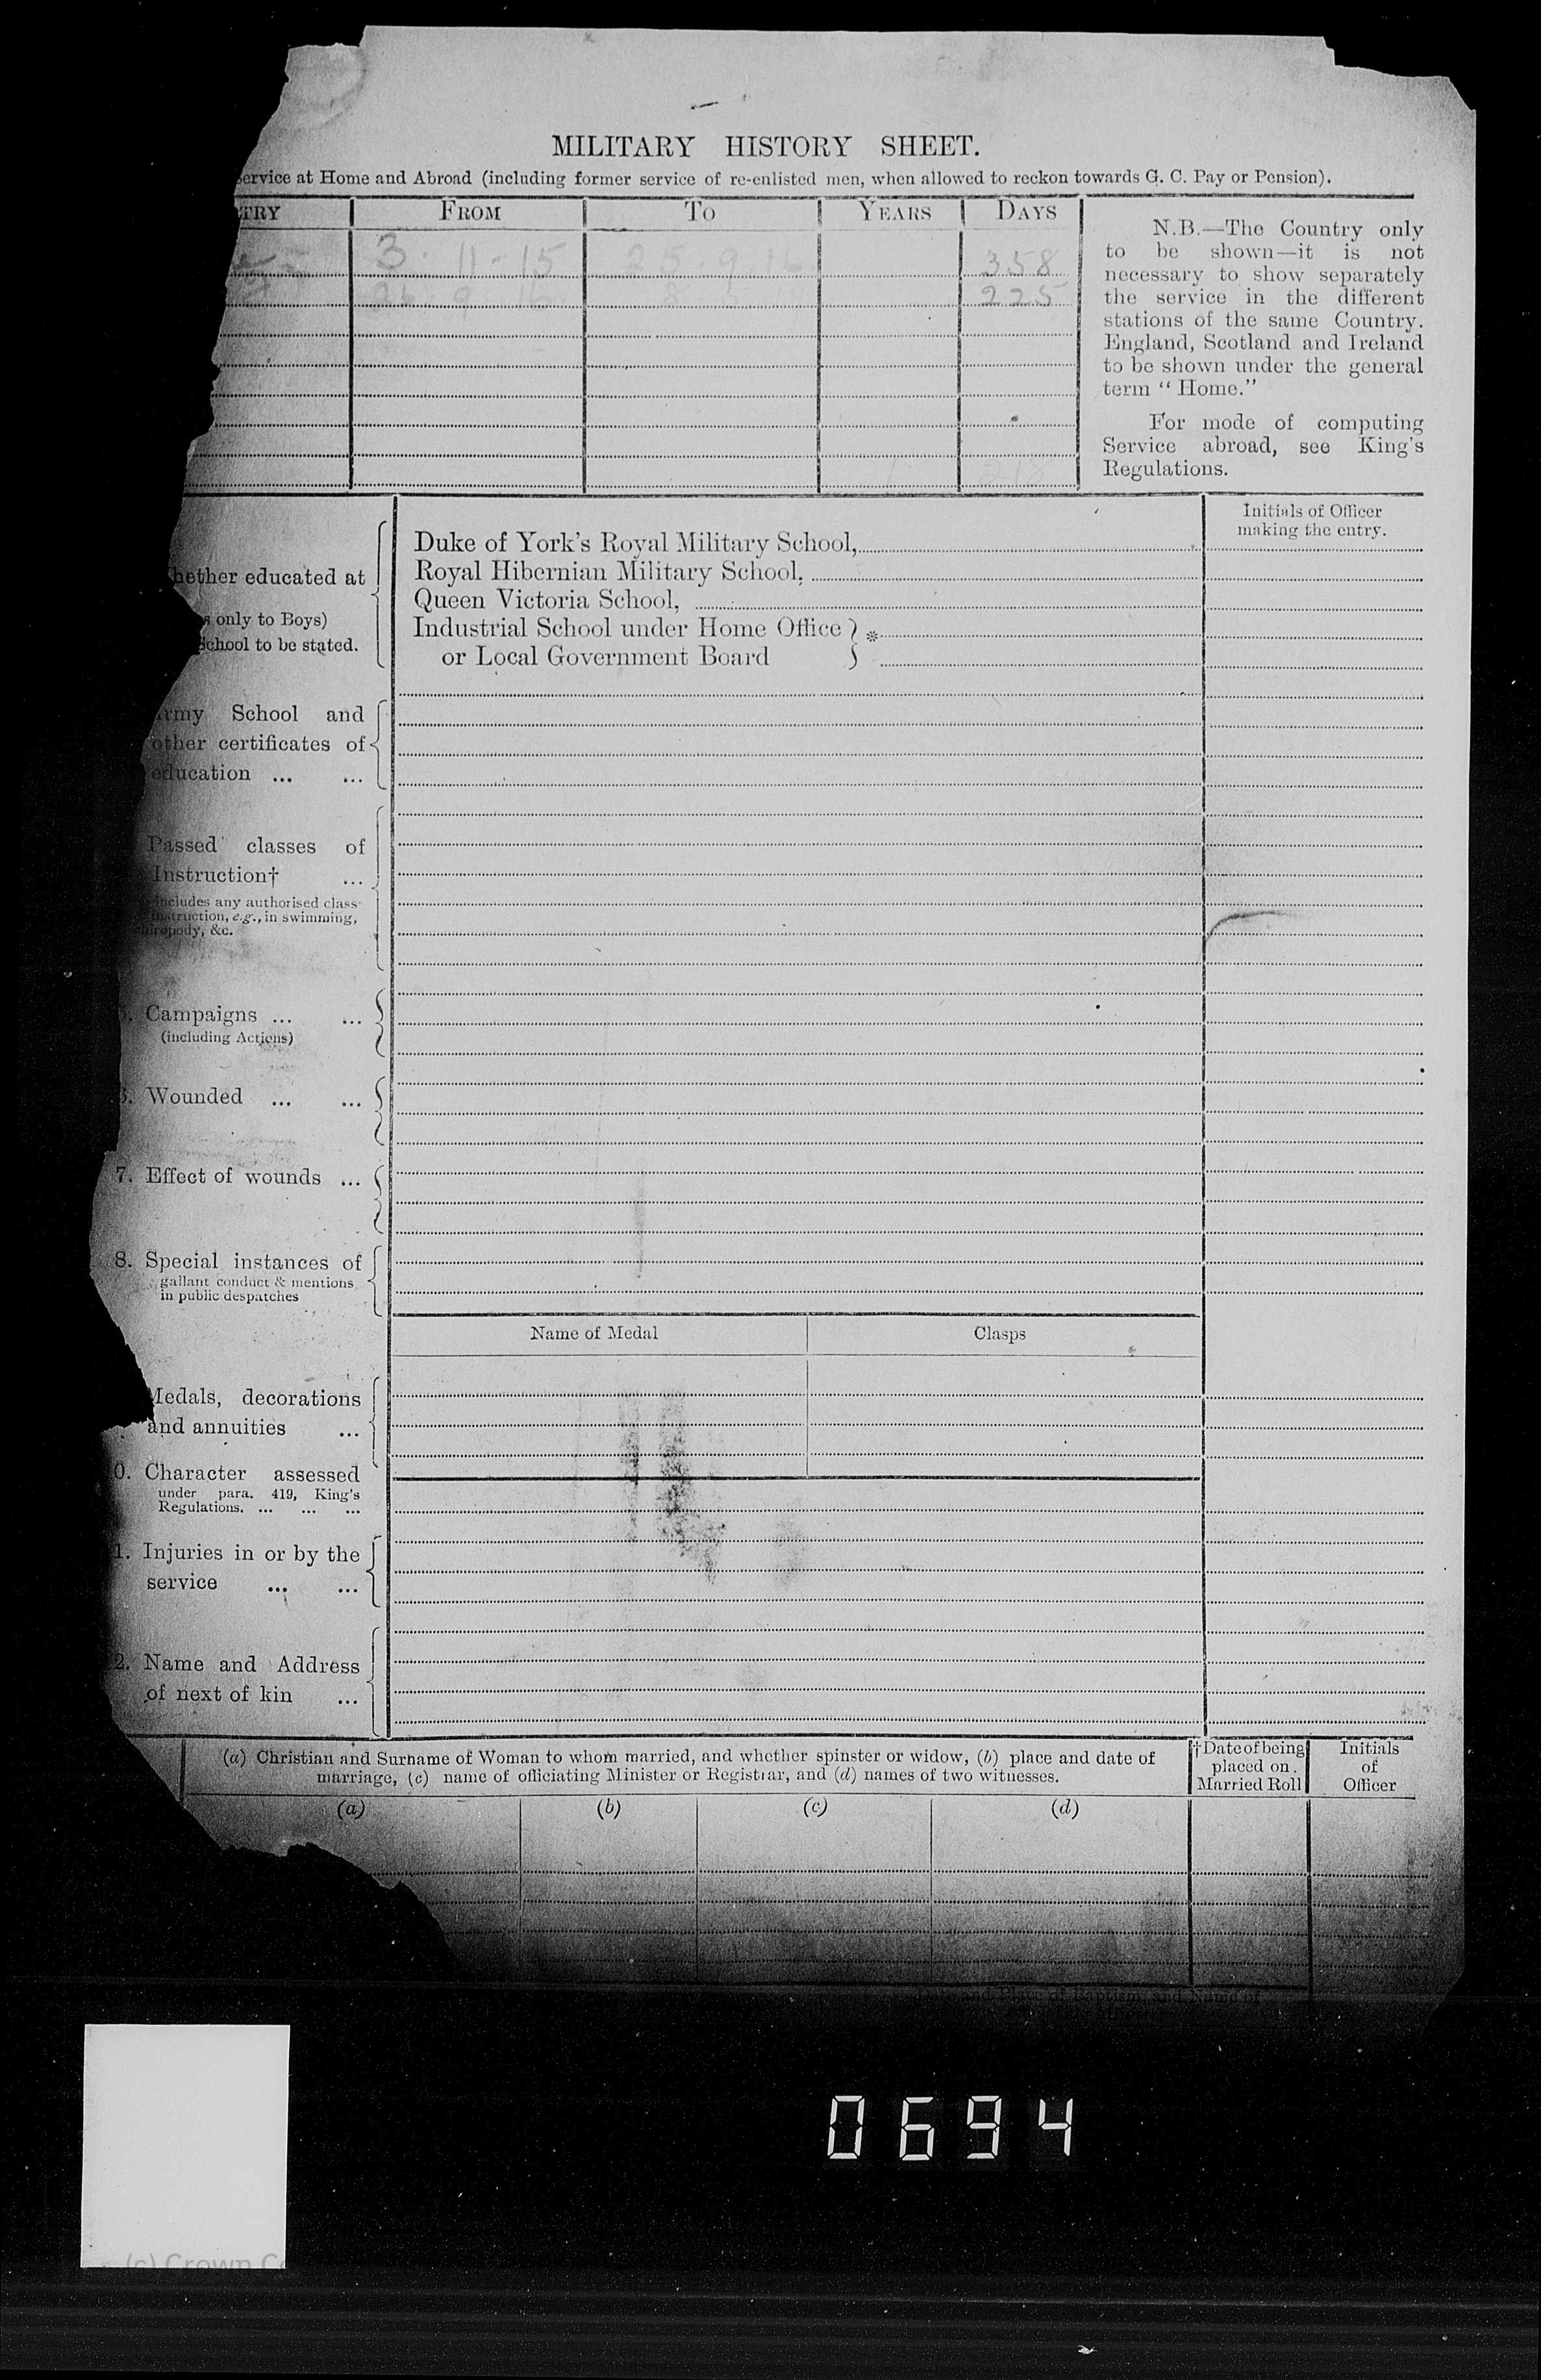 MILITARY HISTORY SHEET.
ervice at Home and Abroad (including former service of re-enlisted men, when allowed to reckon towards G. C. Pay or Pension).
TRY FROM TO YEARS DAYS
3. 11-15 25.9.16 358
26 9 16 225
218
N.B.—The Country only
to be shown—it is not
necessary to show separately
the service in the different
stations of the same Country.
England, Scotland and Ireland
to be shown under the general
term “Home.”
For mode of computing
Service abroad, see King's
Regulations.
Initials of Officer
making the entry.
hether educated at
s only to Boys)
School to be stated.
Duke of York's Royal Military School,
Royal Hibernian Military School,
Queen Victoria School,
Industrial School under Home Office } *
or Local Government Board
rmy School and
other certificates of
education ... ...
Passed classes of
Instruction† ...
includes any authorised class
instruction, e.g., in swimming,
hiropody, &c.
5. Campaigns ... ...
(including Actions)
6. Wounded ... ...
7. Effect of wounds ...
8. Special instances of
gallant conduct & mentions
in public despatches
Name of Medal Clasps
Medals, decorations
and annuities ...
0. Character assessed
under para. 419, King's
Regulations. ... ... ...
1. Injuries in or by the
service ... ...
2. Name and Address
of next of kin ...
(a) Christian and Surname of Woman to whom married, and whether spinster or widow, (b) place and date of
marriage, (c) name of officiating Minister or Registrar, and (d) names of two witnesses.
†Date of being
placed on
Married Roll
Initials
of
Officer
(a) (b) (c) (d)
Date and Place of Baptism, and Name of
0694
(c) Crown C